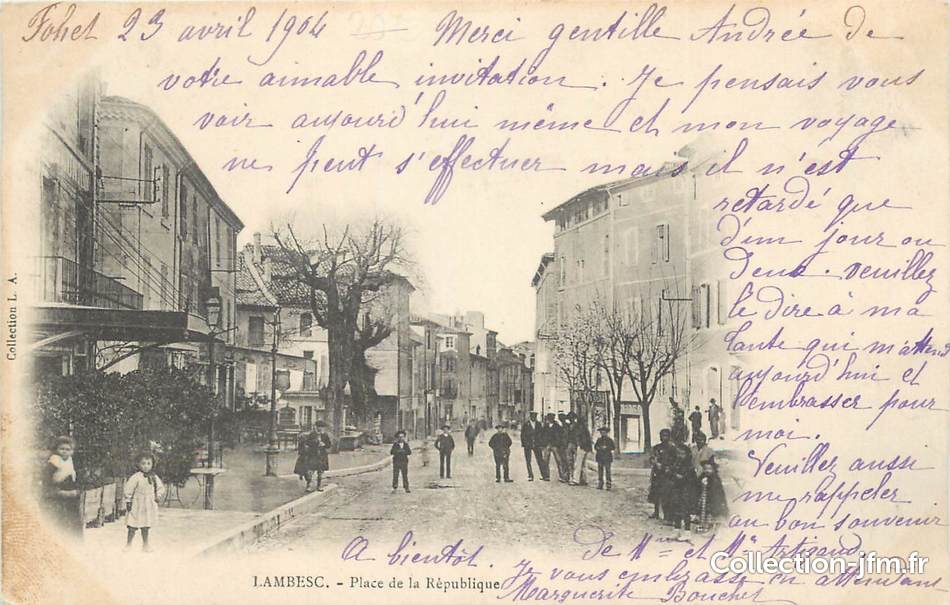 23 avril 1904 Merci gentille Andrée de
votre aimable invitation. Je pensais vous
voir aujourd'hui même et mon voyage
ne peut s'effectuer mais il n'est
retardé que
d'un jour ou
deux. Veuillez
le dire à ma
tante qui m'attend
aujourd'hui et
l'embrasser pour
moi.
Veuillez aussi
me rappeler
au bon souvenir
de Mme et Mr Artigaud
A bientôt.
Je vous embrasse en attendant
Marguerite Bouchet
Collection L. A.
LAMBESC. - Place de la République
Collection-jfm.fr